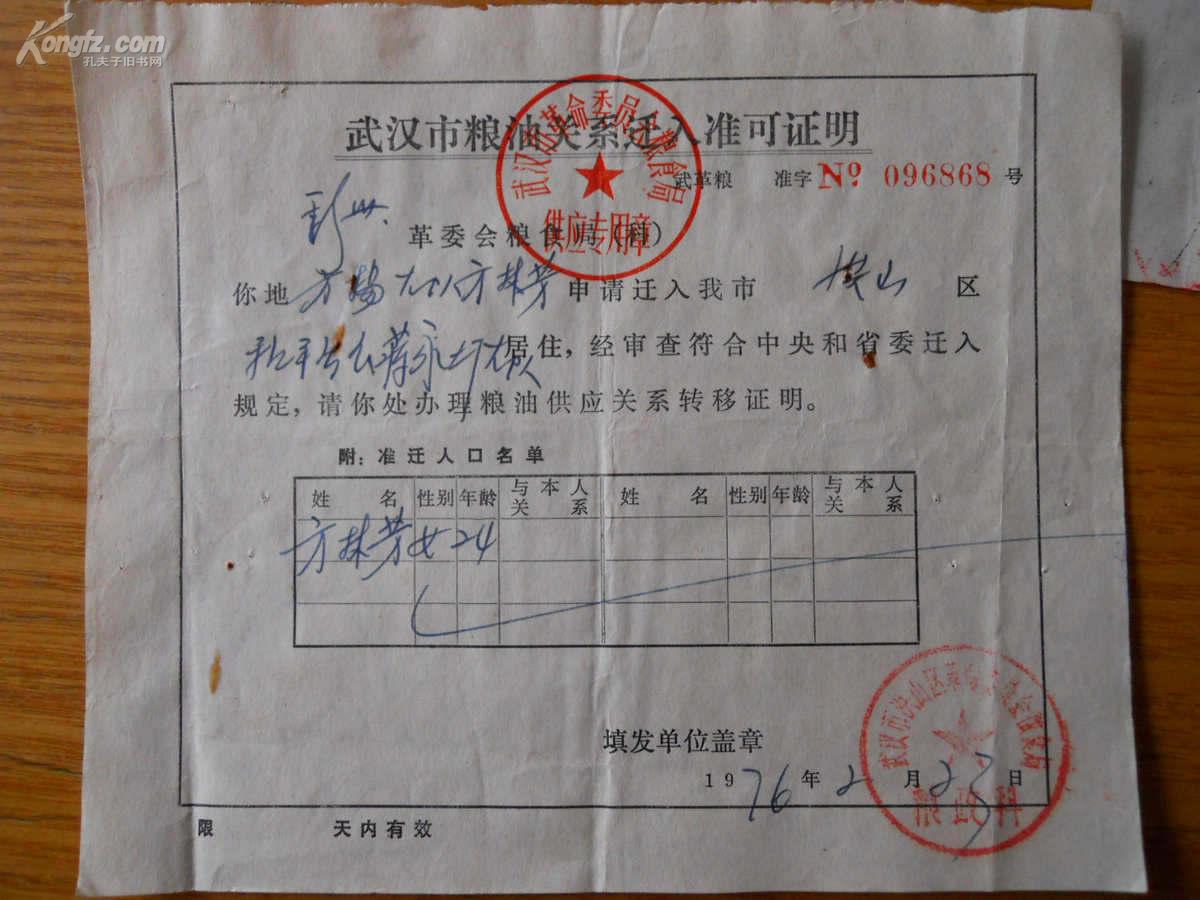 Kongfz.com
孔夫子旧书网
武汉市粮油关系迁入准可证明
武汉市革命委员会粮食局
供应专用章
武革粮 准字 No 096868 号
革委会粮食局(科)
你地 方林芳 申请迁入我市 洪山 区
居住，经审查符合中央和省委迁入
规定，请你处办理粮油供应关系转移证明。
附：准迁人口名单
姓名 性别 年龄 与本人关系 姓名 性别 年龄 与本人关系
方林芳 女 24
填发单位盖章
1976年2月23日
武汉市洪山区革命委员会粮食局
限 天内有效